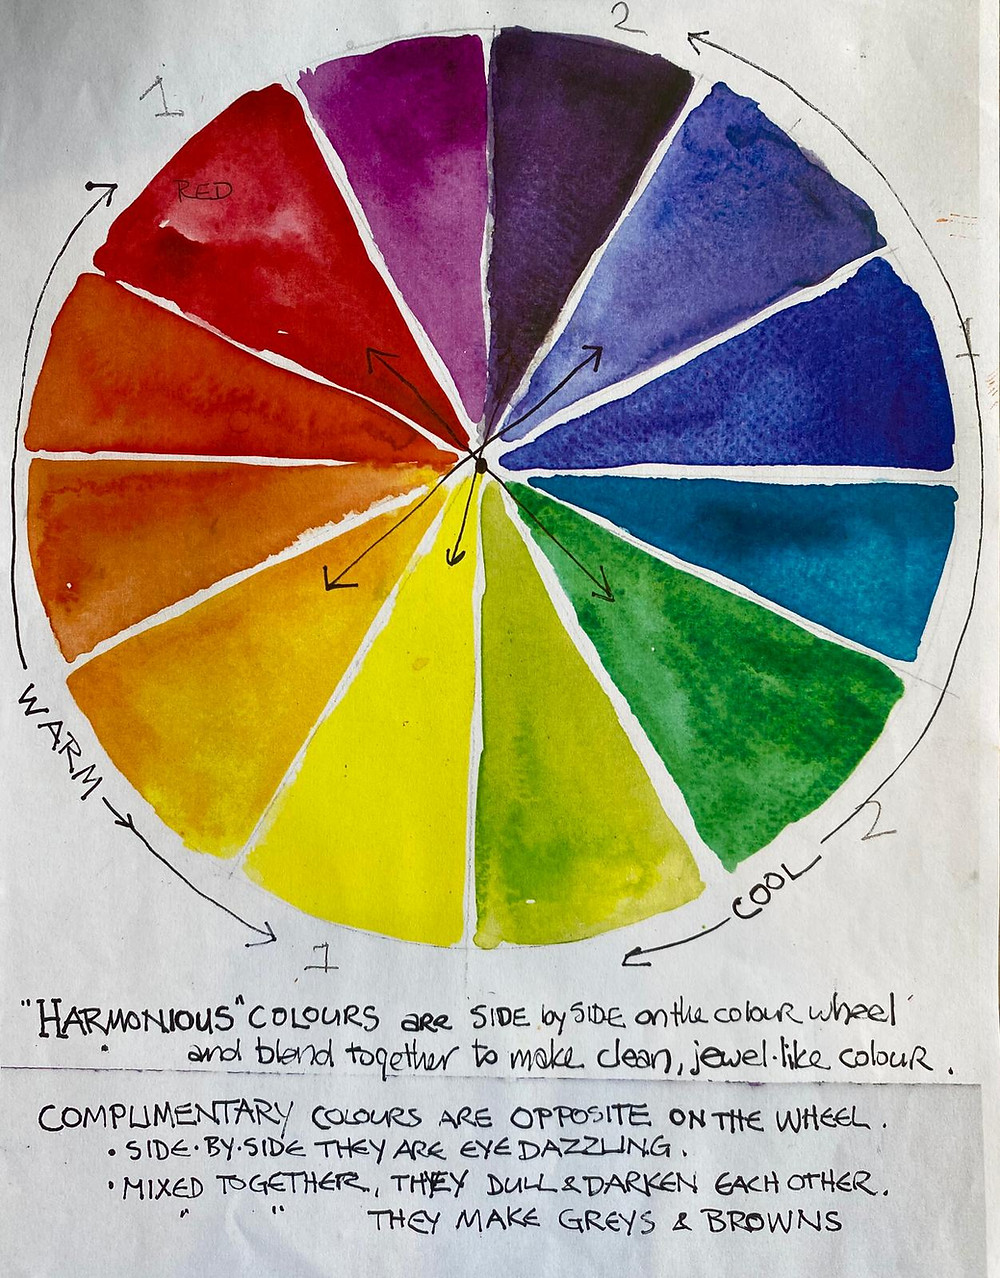 2
1
RED
1
WARM
2
COOL
1
"HARMONIOUS" COLOURS are SIDE by SIDE on the colour wheel
and blend together to make clean, jewel-like colour.
COMPLIMENTARY COLOURS ARE OPPOSITE ON THE WHEEL.
• SIDE-BY-SIDE THEY ARE EYE DAZZLING.
• MIXED TOGETHER, THEY DULL & DARKEN EACH OTHER.
" " THEY MAKE GREYS & BROWNS